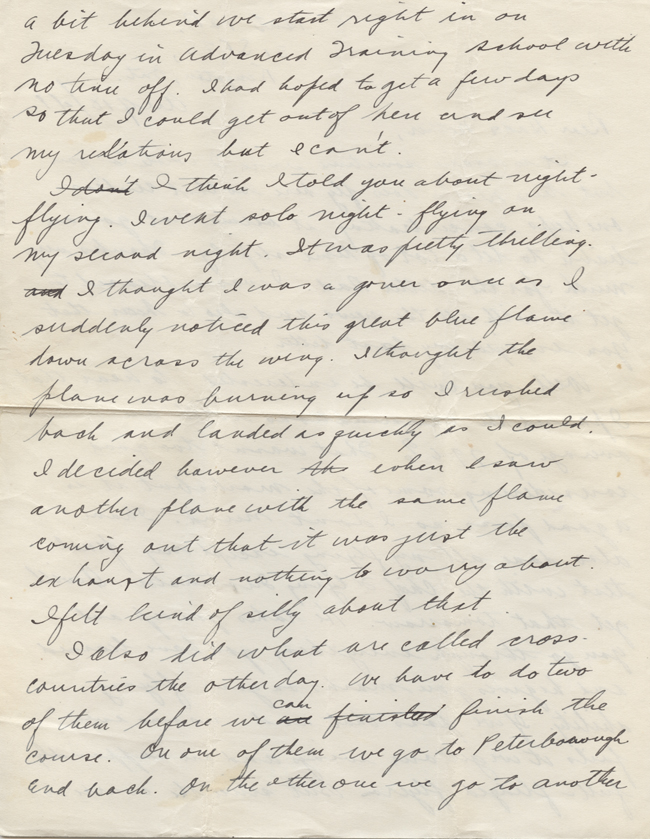 a bit behind we start right in on
Tuesday in Advanced Training school with
no time off. I had hoped to get a few days
so that I could get out of here and see
my relations but I can't.
I don't I think I told you about night-
flying. I went solo night-flying on
my second night. It was pretty thrilling.
and I thought I was a goner once as I
suddenly noticed this great blue flame
down across the wing. I thought the
plane was burning up so I rushed
back and landed as quickly as I could.
I decided however when I saw
another plane with the same flame
coming out that it was just the
exhaust and nothing to worry about.
I felt kind of silly about that.
I also did what are called cross-
countries the other day. We have to do two
of them before we can finished finish the
course. On one of them we go to Peterborough
and back. On the other one we go to another